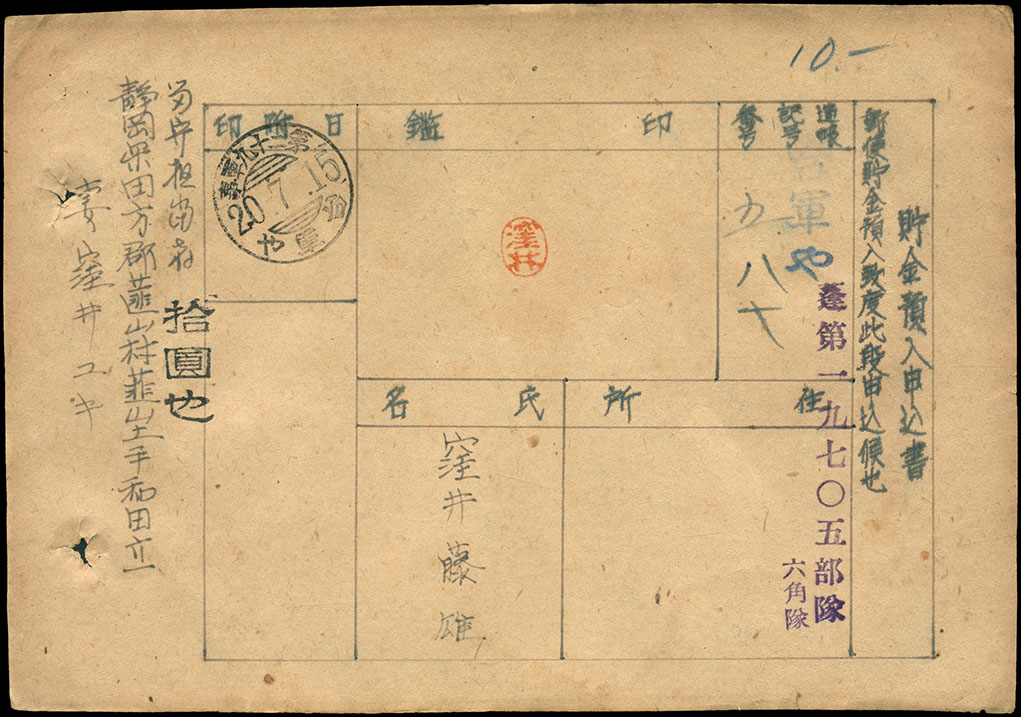 10.—
貯金預入申込書
郵便貯金預入致度此段申込候也
通帳
記号
番号
台軍や
五八七
印鑑
窪井
日附印
第二十九軍事
20.7.15
台軍や
住所
蓬第一九七〇五部隊
六角隊
氏名
窪井藤雄
拾圓也
留守担当者
静岡県田方郡韮山村韮山土手和田立一
妻窪井ユキ